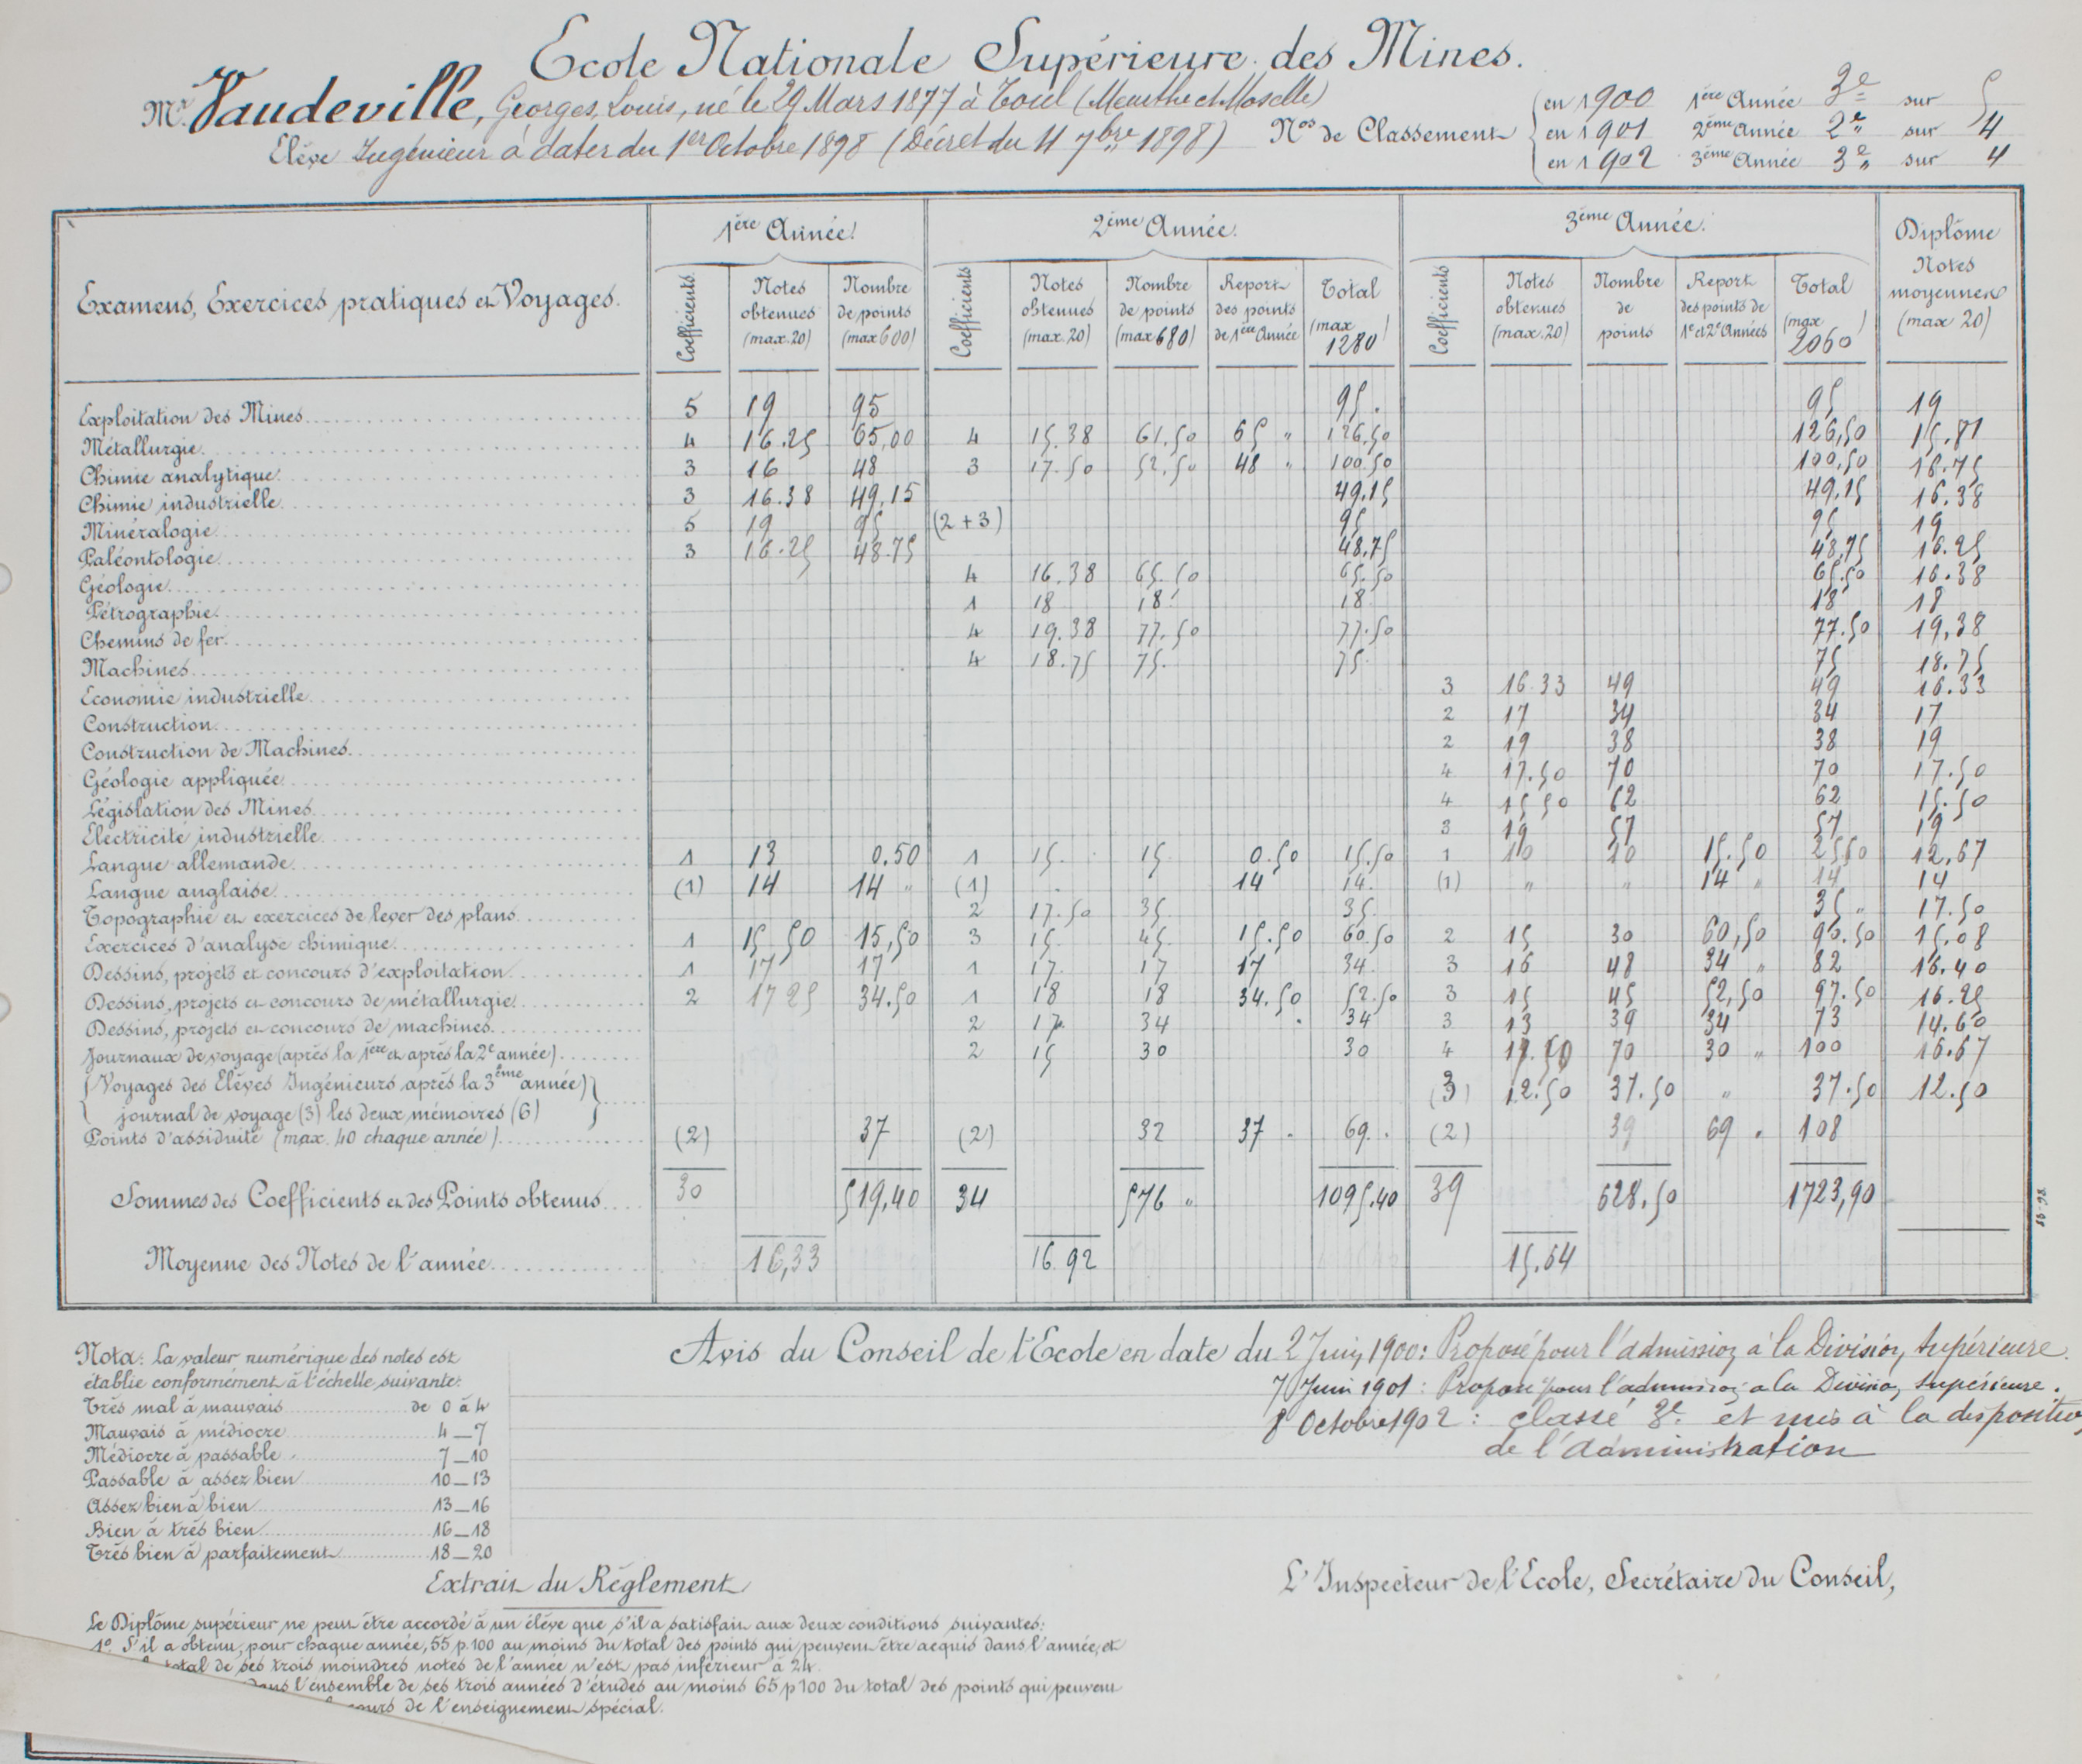 Ecole Nationale Supérieure des Mines.
Mr. Vaudeville, Georges, Louis, né le 29 Mars 1877 à Toul (Meurthe et Moselle)
Elève Ingénieur à dater du 1er Octobre 1898 (Décret du 11 7bre 1898)
Nos de Classement
en 1900 1ère Année 3e sur 5
en 1901 2ème Année 2e sur 4
en 1902 3ème Année 3e sur 4
Examens, Exercices pratiques et Voyages.
1ère Année. 2ème Année. 3ème Année. Diplôme Notes moyennes (max 20)
Coefficients Notes obtenues (max. 20) Nombre de points (max 600) Coefficients Notes obtenues (max. 20) Nombre de points (max 680) Report des points de 1ère Année Total (max 1280) Coefficients Notes obtenues (max. 20) Nombre de points Report des points de 1e et 2e Années Total (max 2060)
Exploitation des Mines 5 19 95 95. 95 19
Métallurgie 4 16.25 65,00 4 15.38 61.50 65 " 126,50 126,50 15.81
Chimie analytique 3 16 48 3 17.50 52.50 48 " 100.50 100,50 16.75
Chimie industrielle 3 16.38 49,15 49.15 49,15 16.38
Minéralogie 5 19 95 (2+3) 95 95 19
Paléontologie 3 16.25 48.75 48.75 48,75 16.25
Géologie 4 16.38 65.50 65.50 65.50 16.38
Pétrographie 1 18 18. 18 18 18
Chemins de fer 4 19.38 77.50 77.50 77.50 19,38
Machines 4 18.75 75. 75. 75 18.75
Economie industrielle 3 16.33 49 49 16.33
Construction 2 17 34 34 17
Construction de Machines 2 19 38 38 19
Géologie appliquée 4 17.50 70 70 17.50
Législation des Mines 4 15.50 62 62 15.50
Electricité industrielle 3 19 57 57 19
Langue allemande 1 13 0.50 1 15. 15 0.50 15.50 1 10 10 15.50 25.50 12,67
Langue anglaise (1) 14 14 " (1) 14 14. (1) " " 14 " 14 14
Topographie et exercices de lever des plans 2 17.50 35. 35. 35 " 17.50
Exercices d'analyse chimique 1 15.50 15,50 3 15. 45. 15.50 60.50 2 15 30 60,50 90.50 15.08
Dessins, projets et concours d'exploitation 1 17 17 1 17. 17 17 34. 3 16 48 34 " 82 16.40
Dessins, projets et concours de métallurgie 2 17 25 34.50 1 18 18 34.50 52.50 3 15 45 52,50 97.50 16.25
Dessins, projets et concours de machines 2 17. 34 34 3 13 39 34 73 14.60
Journaux de voyage (après la 1ère et après la 2e année) 2 15 30 30 4 17.50 70 30 " 100 16.67
Voyages des Elèves Ingénieurs après la 3ème année)
journal de voyage (3) les deux mémoires (6) (3) 12.50 37.50 " 37.50 12.50
Points d'assiduité (max. 40 chaque année) (2) 37 (2) 32 37 . 69 . (2) 39 69 . 108
Sommes des Coefficients et des Points obtenus 30 519,40 34 576 " 1095.40 39 628.50 1723,90
Moyenne des Notes de l'année 16,33 16.92 15.64
Nota: La valeur numérique des notes est
établie conformément à l'échelle suivante:
Très mal à mauvais de 0 à 4
Mauvais à médiocre 4_7
Médiocre à passable 7_10
Passable à assez bien 10_13
Assez bien à bien 13_16
Bien à très bien 16_18
Très bien à parfaitement 18_20
Avis du Conseil de l'Ecole en date du 2 Juin 1900: Proposé pour l'admission à la Division Supérieure.
7 Juin 1901: Proposé pour l'admission à la Division Supérieure.
8 Octobre 1902: classé 3e. et mis à la disposition
de l'administration
L'Inspecteur de l'Ecole, Secrétaire du Conseil,
Extrait du Règlement
Le Diplôme supérieur ne peut être accordé à un élève que s'il a satisfait aux deux conditions suivantes:
1o S'il a obtenu, pour chaque année, 55 p. 100 au moins du total des points qui peuvent être acquis dans l'année, et
total de ses trois moindres notes de l'année n'est pas inférieur à 24.
dans l'ensemble de ses trois années d'études au moins 65 p 100 du total des points qui peuvent
cours de l'enseignement spécial.